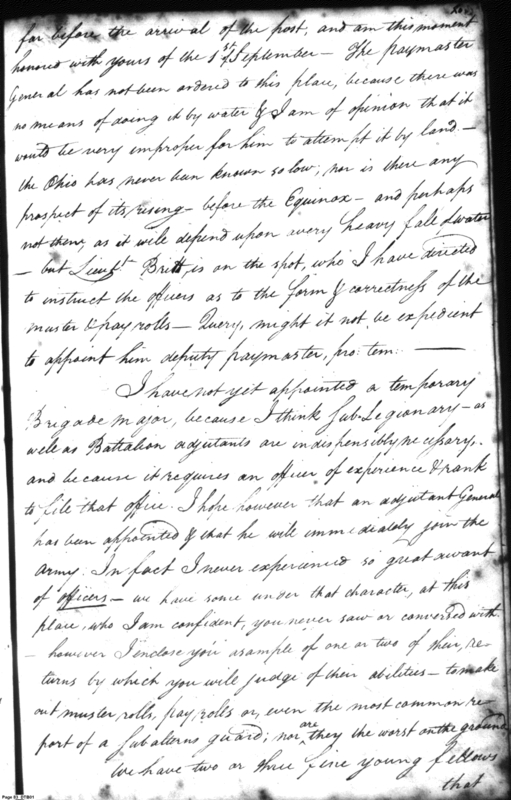 for before the arrival of the post, and am this moment
honored with yours of the 1st of September — The paymaster
General has not been ordered to this place, because there was
no means of doing it by water & I am of opinion that it
would be very improper for him to attempt it by land. —
the Ohio has never been known so low, nor is there any
prospect of its rising before the Equinox — and perhaps
not then, as it will depend upon a very heavy fall of water
— but Lieut. Britt, is on the spot, who I have directed
to instruct the officers as to the form & correctness of the
muster & pay rolls — Query, might it not be expedient
to appoint him deputy paymaster, pro: tem: —
I have not yet appointed a temporary
Brigade Major, because I think Sub-Legionary — as
well as Battalion adjutants are indispensibly necessary.
and because it requires an officer of experience & rank
to file that office. I hope however that an adjutant General
has been appointed & that he will immediately join the
army. In fact I never experienced so great a want
of officers — we have some under that character, at this
place, who I am confident, you never saw or conversed with
— however I enclose you a sample of one or two of their, re-
turns by which you will judge of their abilities — to make
out muster, rolls, pay, rolls or, even the most common re-
port of a Subalterns guard; nor are they the worst on the ground
We have two or three fine young fellows
that
Page 83 07/801